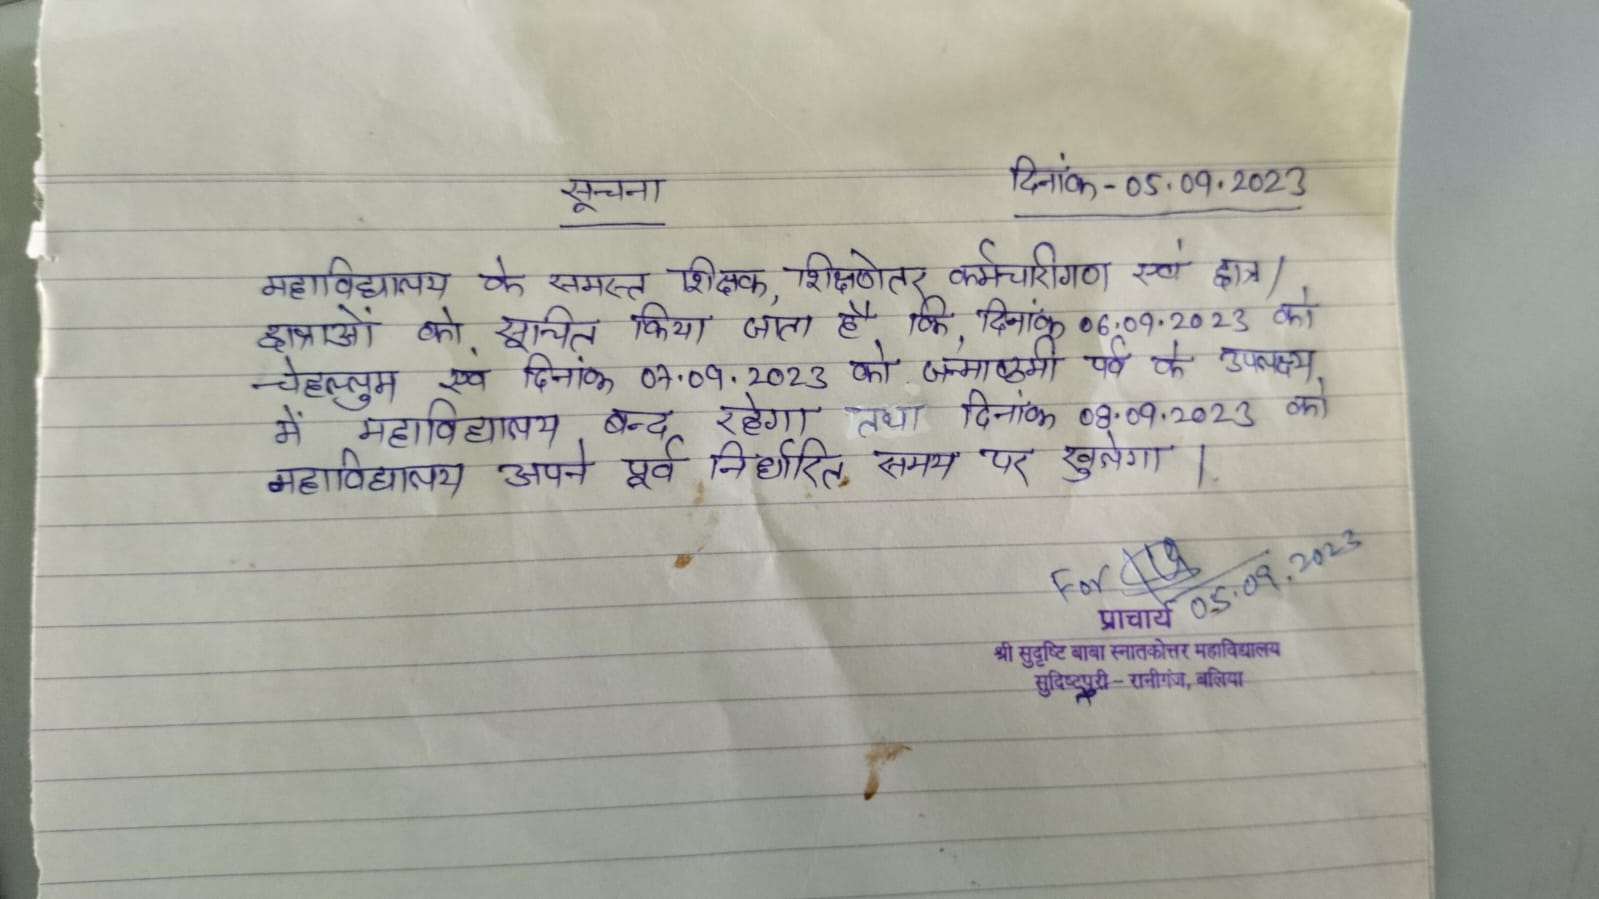 सूचना
दिनांक - 05.09.2023
महाविद्यालय के समस्त शिक्षक, शिक्षणेतर कर्मचारीगण एवं छात्र/
छात्राओं को सूचित किया जाता है कि, दिनांक 06.09.2023 को
चेहल्लुम एवं दिनांक 07.09.2023 को जन्माष्टमी पर्व के उपलक्ष्य
में महाविद्यालय बन्द रहेगा तथा दिनांक 08.09.2023 को
महाविद्यालय अपने पूर्व निर्धारित समय पर खुलेगा।
For
05.09.2023
प्राचार्य
श्री सुदृष्टि बाबा स्नातकोत्तर महाविद्यालय
सुदिष्टपुरी – रानीगंज, बलिया